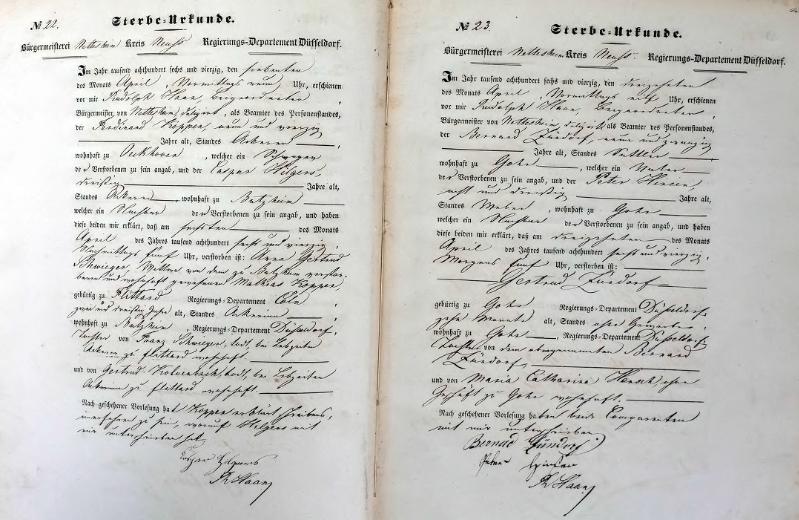 № 22.
Sterbe-Urkunde.
Bürgermeisterei Nettesheim Kreis Neuss Regierungs-Departement Düsseldorf.
Im Jahr tausend achthundert sechs und vierzig, den siebenten
des Monats April, Vormittags neun Uhr, erschienen
vor mir Rudolph Haan, Beigeordneter
Bürgermeister von Nettesheim delegirt, als Beamter des Personenstandes,
der Ferdinand Küpper, neun und vierzig
Jahre alt, Standes Ackerer
wohnhaft zu Anckhoven, welcher ein Schwager
der Verstorbenen zu sein angab, und der Caspar Hilgers
dreißig Jahre alt,
Standes Ackerer, wohnhaft zu Butzheim
welcher ein Nachbar der Verstorbenen zu sein angab, und haben
diese beiden mir erklärt, daß am sechsten des Monats
April des Jahres tausend achthundert sechs und vierzig,
Nachmittags fünf Uhr, verstorben ist: Anna Gertrud
Schwieger, Wittwe von dem zu Butzheim verstorbenen
und wohnhaft gewesenen Mathias Küpper,
gebürtig zu Flittard Regierungs-Departement Cöln
zwei und dreißig Jahre alt, Standes Ackerin
wohnhaft zu Butzheim, Regierungs-Departement Düsseldorf,
Tochter von Franz Schwieger, todt, bei Lebzeiten
Ackerer zu Flittard wohnhaft
und von Gertrud todt, bei Lebzeiten
Ackerin zu Flittard wohnhaft
Nach geschehener Vorlesung hat Küpper erklärt Schreibens
unerfahren zu sein, worauf Hilgers mit
mir unterschrieben hat.
Caspar Hilgers
R Haan
№ 23.
Sterbe-Urkunde.
Bürgermeisterei Nettesheim Kreis Neuss Regierungs-Departement Düsseldorf.
Im Jahr tausend achthundert sechs und vierzig, den dreizehnten
des Monats April, Vormittags elf Uhr, erschienen
vor mir Rudolph Haan, Beigeordneter,
Bürgermeister von Nettesheim delegirt als Beamter des Personenstandes,
der Bernard Zündorf, neun und zwanzig
Jahre alt, Standes Sattler
wohnhaft zu Gohr, welcher ein Vater
der Verstorbenen zu sein angab, und der Peter
acht und dreißig Jahre alt,
Standes Weber, wohnhaft zu Gohr
welcher ein Nachbar der Verstorbenen zu sein angab, und haben
diese beiden mir erklärt, daß am dreizehnten des Monats
April des Jahres tausend achthundert sechs und vierzig,
Morgens fünf Uhr, verstorben ist:
Gertrud Zündorf
gebürtig zu Gohr Regierungs-Departement Düsseldorf,
zehn Monate alt, Standes ohne Gewerbe,
wohnhaft zu Gohr, Regierungs-Departement Düsseldorf
Tochter von dem Bernard
Zündorf,
und von Maria Catharina ohne
Geschäft zu Gohr wohnhaft.
Nach geschehener Vorlesung haben beide Comparenten
mit mir unterschrieben.
Bernad Zündorf
Peter
R Haan